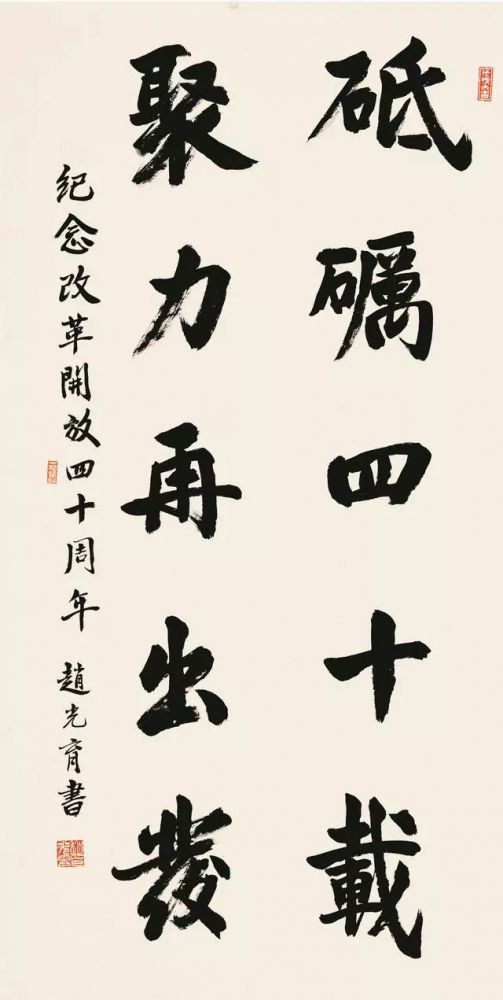 砥礪四十載
聚力再出發
紀念改革開放四十周年 趙光育書